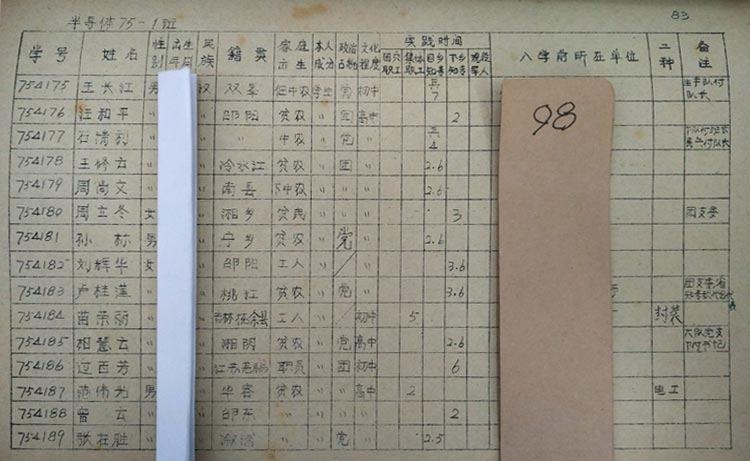 半导体75-1班 83
学号 姓名 性别 出生年月 民族 籍贯 家庭出生 本人成分 政治面貌 文化程度 实践时间 入学前所在单位 工种 备注
国穴职工 集体职工 回乡知青 下乡知青 现役军人
754175 王长江 男 汉 双峯 下中农 学生 党 初中 兵7 队长
754176 汪和平 〃 邵阳 贫农 〃 团 高中 2
754177 石清 〃 〃 中农 〃 党 〃 兵4
754178 王修云 〃 冷水江 贫农 〃 团 〃 2.6
754179 周尚文 〃 南县 下中农 〃 〃 2.6
754180 周立冬 女 湘乡 贫民 〃 〃 3 团支委
754181 孙 标 男 宁乡 贫农 〃 党 〃 2.6
754182 刘辉华 女 邵阳 工人 〃 / 〃 3.6
754183 卢桂莲 〃 桃江 贫农 〃 党 〃 3.6
754184 苗荣丽 〃 吉林扶余县 工人 〃 初中 5 封装
754185 相慧云 〃 湘阴 贫农 〃 党 高中 2.6 大队党支付书记
754186 过百芳 〃 江苏无锡 职员 〃 团 初中 6
754187 范伟为 男 华容 贫农 〃 〃 高中 2 电工
754188 曾 云 〃 邵东 〃 〃 〃 2
754189 张在胜 〃 溆浦 〃 党 〃 2.5
98